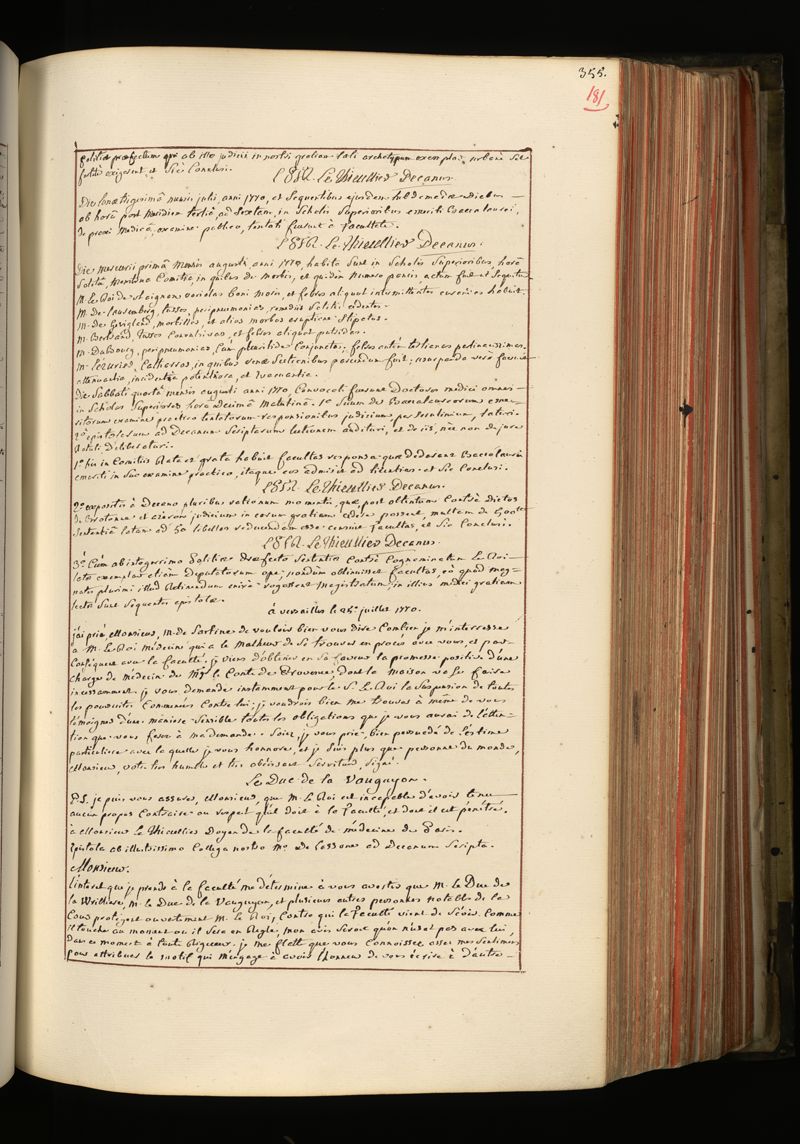 355.
181
politiæ præfectum qui ab illo judicii in nostri gratiam lati archetypum exemplar, urbane sed
exigerent et Sic Conclusi.
Le Thieullier Decanus.
Die lunæ trigesimâ mensis julii, anni 1770, et Sequentibus ejusdem hebdomadæ diebus
ab horâ post Meridiem tertiâ, ad Sextam, in Scholis Superioribus emeriti Baccalaurei,
de praxi Medicâ, examine publico, tentati fuerunt à facultate.
Le Thieullier Decanus.
Die mercurii primâ Mensis augusti anni 1770, habita Sunt in Scholis Superioribus, horâ
Solitâ, Menstrua Comitia, in quibus de morbis, et quidem Numero paucis actum fuit ut Sequitur
M. Le Roi de St aignan variolas boni moris, et febres aliquot intermittentes curandas habuit.
M. de Lausemberg, tusses, peripneumonias, remediis Solitis cedentes.
M. de Gevigland, morbillos, et alios morbos eruptione Stipatos.
M. Bertrand, tusses Convulsivas, et febres aliquot putridas.
M. Dubourg, peripneumonias, Cum pleuritide Conjunctas; febres autem tertianas pertinacissimas.
M. Lezurier, Catharros, in quibus venæ Sectionibus parcendum fuit, usurpanda verò fuerunt
attenuantia, incidentia potenthora, et Evacuantia.
Die Sabbati quartâ mensis augusti anni 1770, Convocati fuerunt Doctores medici omnes
in Scholas Superiores horâ decimâ Matutinâ. 1°. Suum de Baccalaureorum eme-
ritorum examine practico tentatorum responsionibus judicium per Scrutinium, laturi.
2°. epistolarum ad Decanum Scriptarum lectionem audituri, et de iis, nec non de jure
Natali deliberaturi.
1°. his in Comitiis Rata et grata habuit facultas responsa quæ dederant Baccalaurei
emeriti in suo examine practico, itaque eos admisit ad licentias. et Sic Conclusi.
Le Thieullier Decanus.
2°. expositis à Decano pluribus rationum momentis, quæ, post obtentam Contrà dictos
de Brotonne et judicium in eorum gratiam cedere possent, multam de
Sententiâ latam ad 50 libellos reducendam esse censuit facultas, et Sic Conclusi.
Le Thieullier Decanus.
3°. Cum ab integerrimo politiæ Præfecto Sententiæ Contrà Cognominatum Le Roi
latæ exemplar etiam Deputatorum ope, nondum obtinuisset facultas, eò quod mag-
nates plurimi illud retinendum enixè rogassent Magistratum, in illius medici gratiam
lectæ Sunt Sequentes epistolæ.
à versailles le 24e juillet 1770.
j'ai prié, Monsieur, M. de Sartine de vouloir bien vous dire Combien je m'interresse
à M. Le Roi médecin qui a le Malheur de se trouver en procès avec vous, et par
Conséquent avec la faculté. j'y viens d'obtenir en Sa faveur la promesse positive d'une
charge de Médecin de Mgr. le Conte de Provence, dont la Maison va se faire
incessamment. je vous demande instamment pour le S. Le Roi la Suspension de toutes
les poursuites Commencées Contre lui; je voudrois bien me trouver à même de vous
témoigner d'une manière Sensible toutes les obligations que je vous aurai de l'atten-
tion que vous ferez à ma demande. Soiez, je vous prie, bien persuadé de l'estime
particulière avec la quelle je vous honnore, et je Suis plus que personne du monde,
Monsieur, votre très humble et très obéissant Serviteur, Signé.
Le Duc de la Vauguyon.
P.S. je puis vous assurer, Monsieur, que M. Le Roi est incapable d'avoir tenu
aucun propos Contraire au respect qu'il doit à la faculté, et dont il est pénétré.
à Monsieur Le Thieullier Doyen de la faculté de médecine de Paris.
Epistola ab illustrissimo Collega nostro Mo. De Lassone ad Decanum Scripta.
Monsieur.
L'interet que je prends à la faculté me détermine à vous avertir que M. Le Duc de
la Vrillière, M. le Duc de la Vauguyon, et plusieurs autres personnes notables de la
Cour protègent ouvertement M. le Roi, Contre qui la Faculté vient de Sévir. Comme
il touche au moment où il sera en Règle, mon avis seroit qu'on n'usat pas avec lui,
dans ce moment à toute Rigueur. je me flatte que vous connoissez assez mes Sentimens
pour attribuer le motif qui m'engage à avoir l'honneur de vous écrire à d'autre-